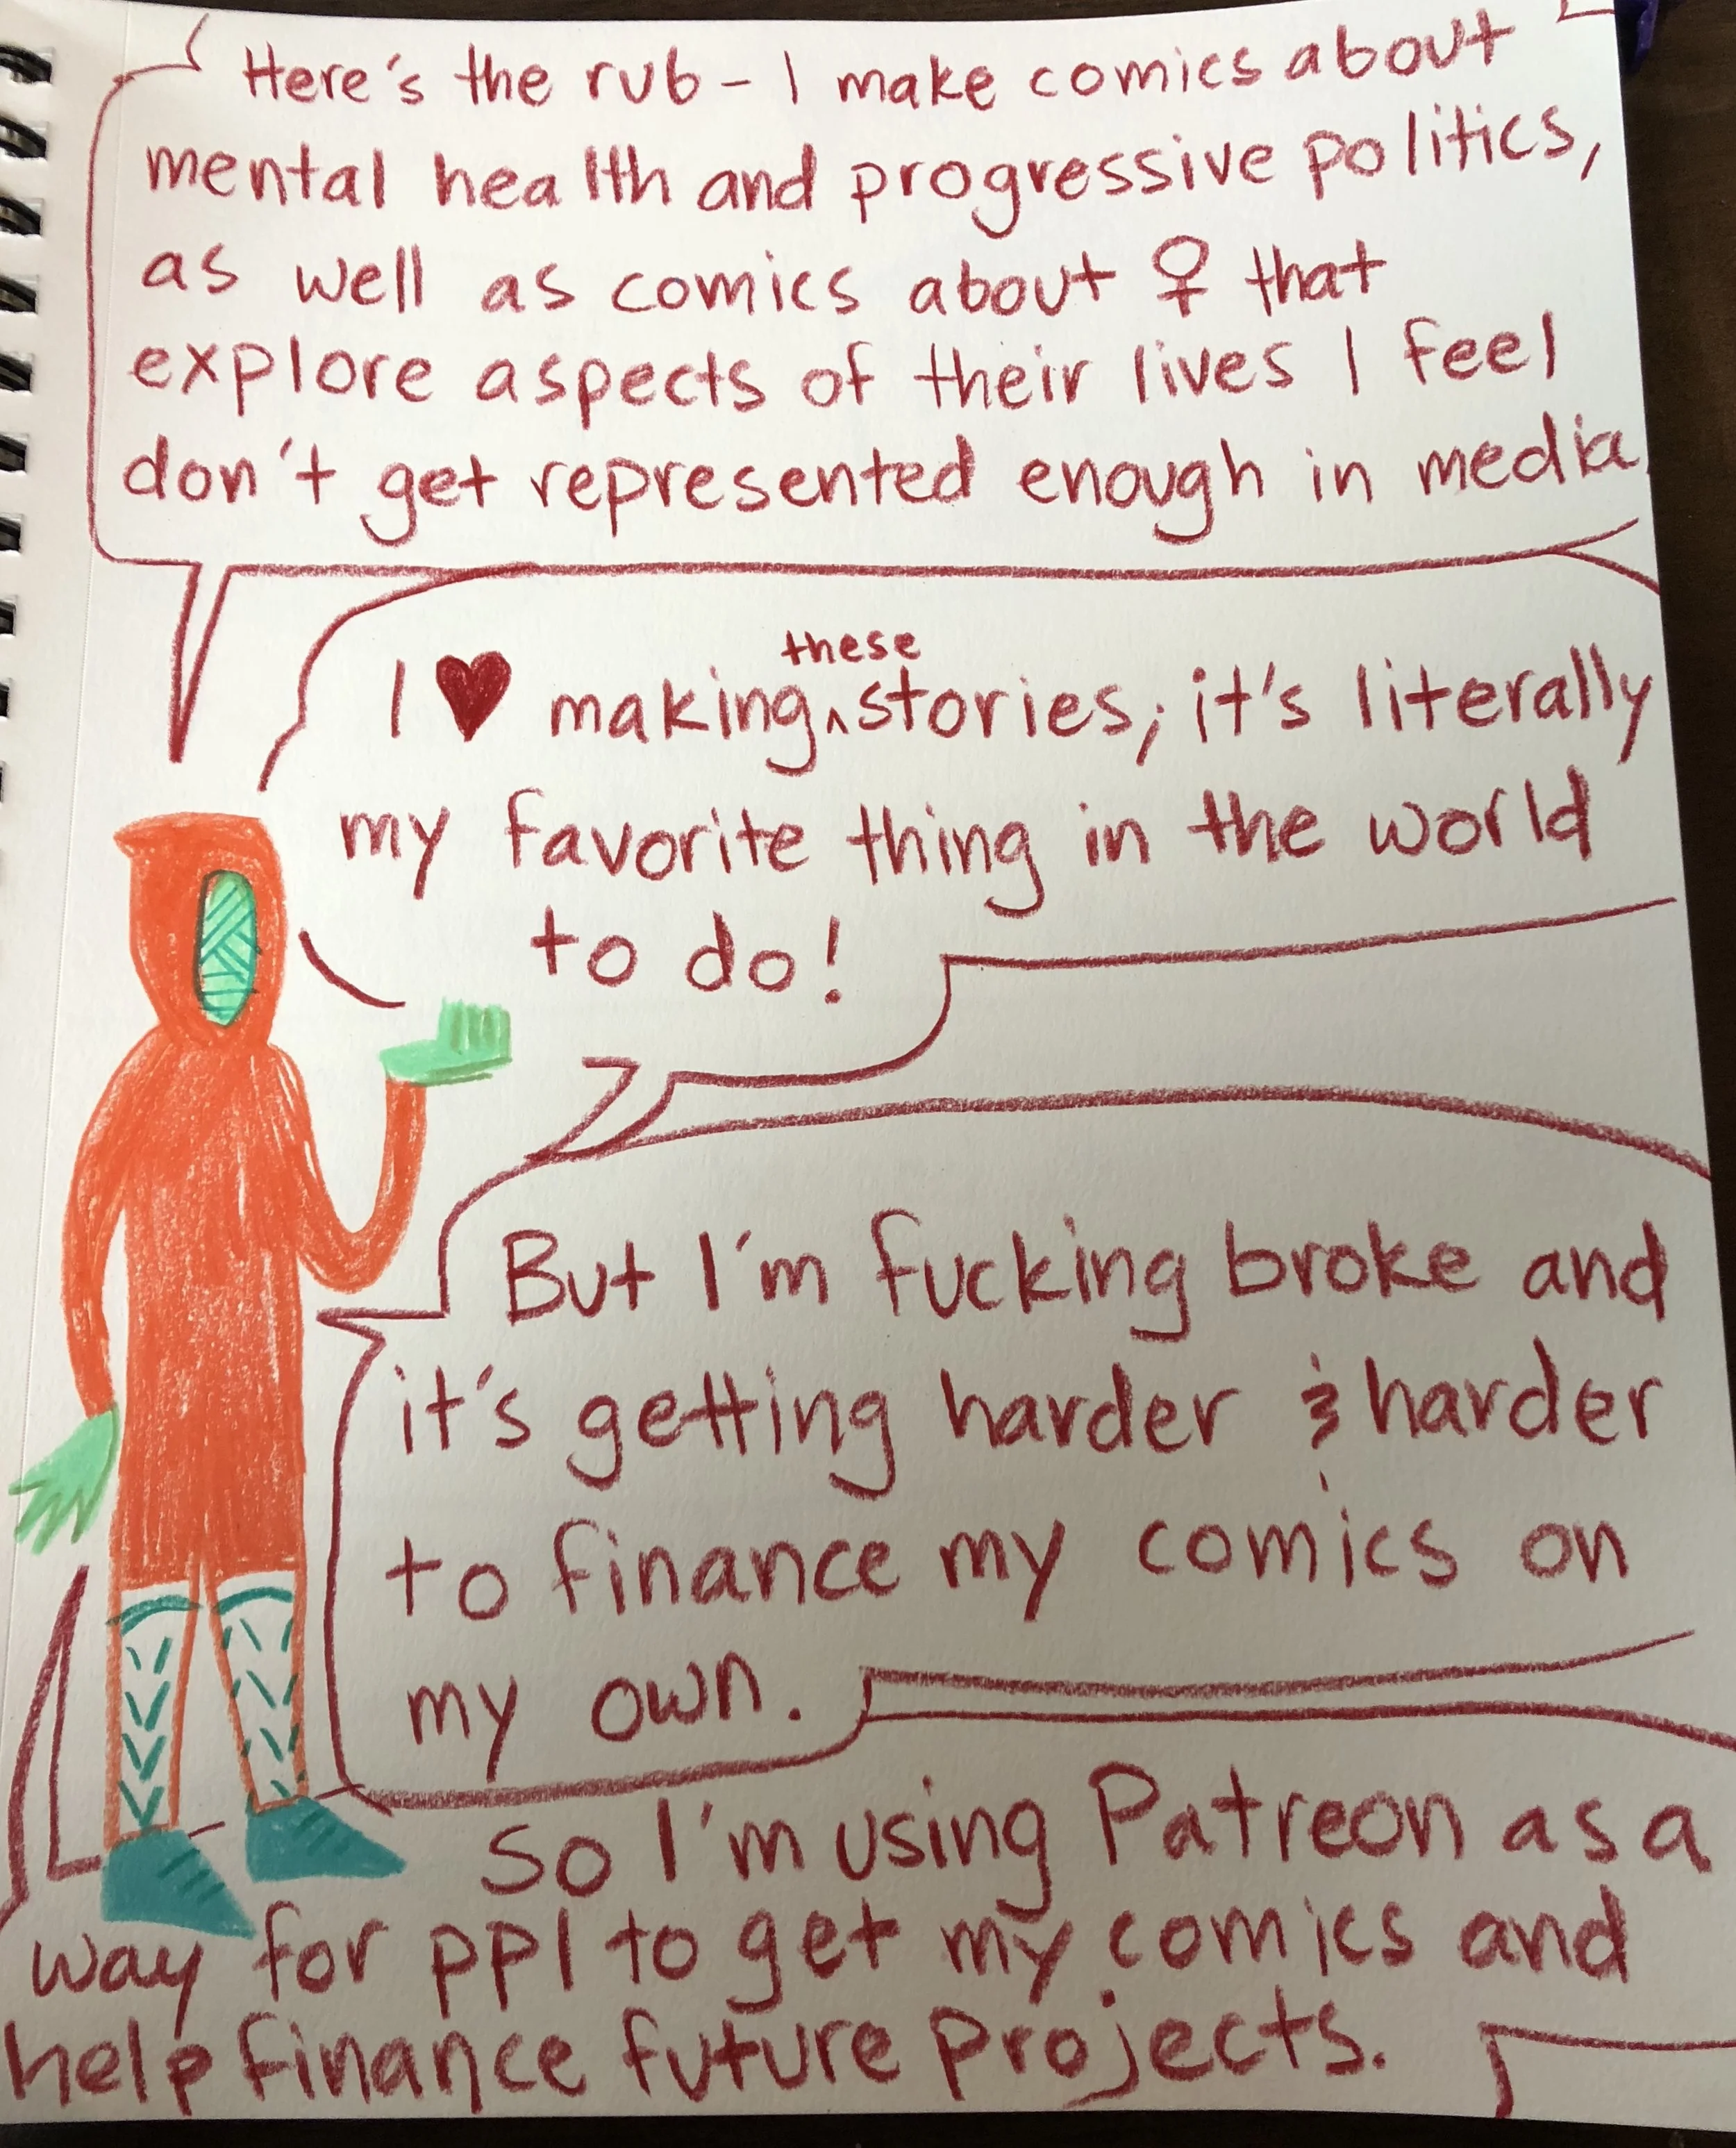 Here's the rub - I make comics about
mental health and progressive politics,
as well as comics about ♀ that
explore aspects of their lives I feel
don't get represented enough in media
I ♥ making these stories; it's literally
my favorite thing in the world
to do!
But I'm fucking broke and
it's getting harder & harder
to finance my comics on
my own.
So I'm using Patreon as a
way for ppl to get my comics and
help finance future projects.